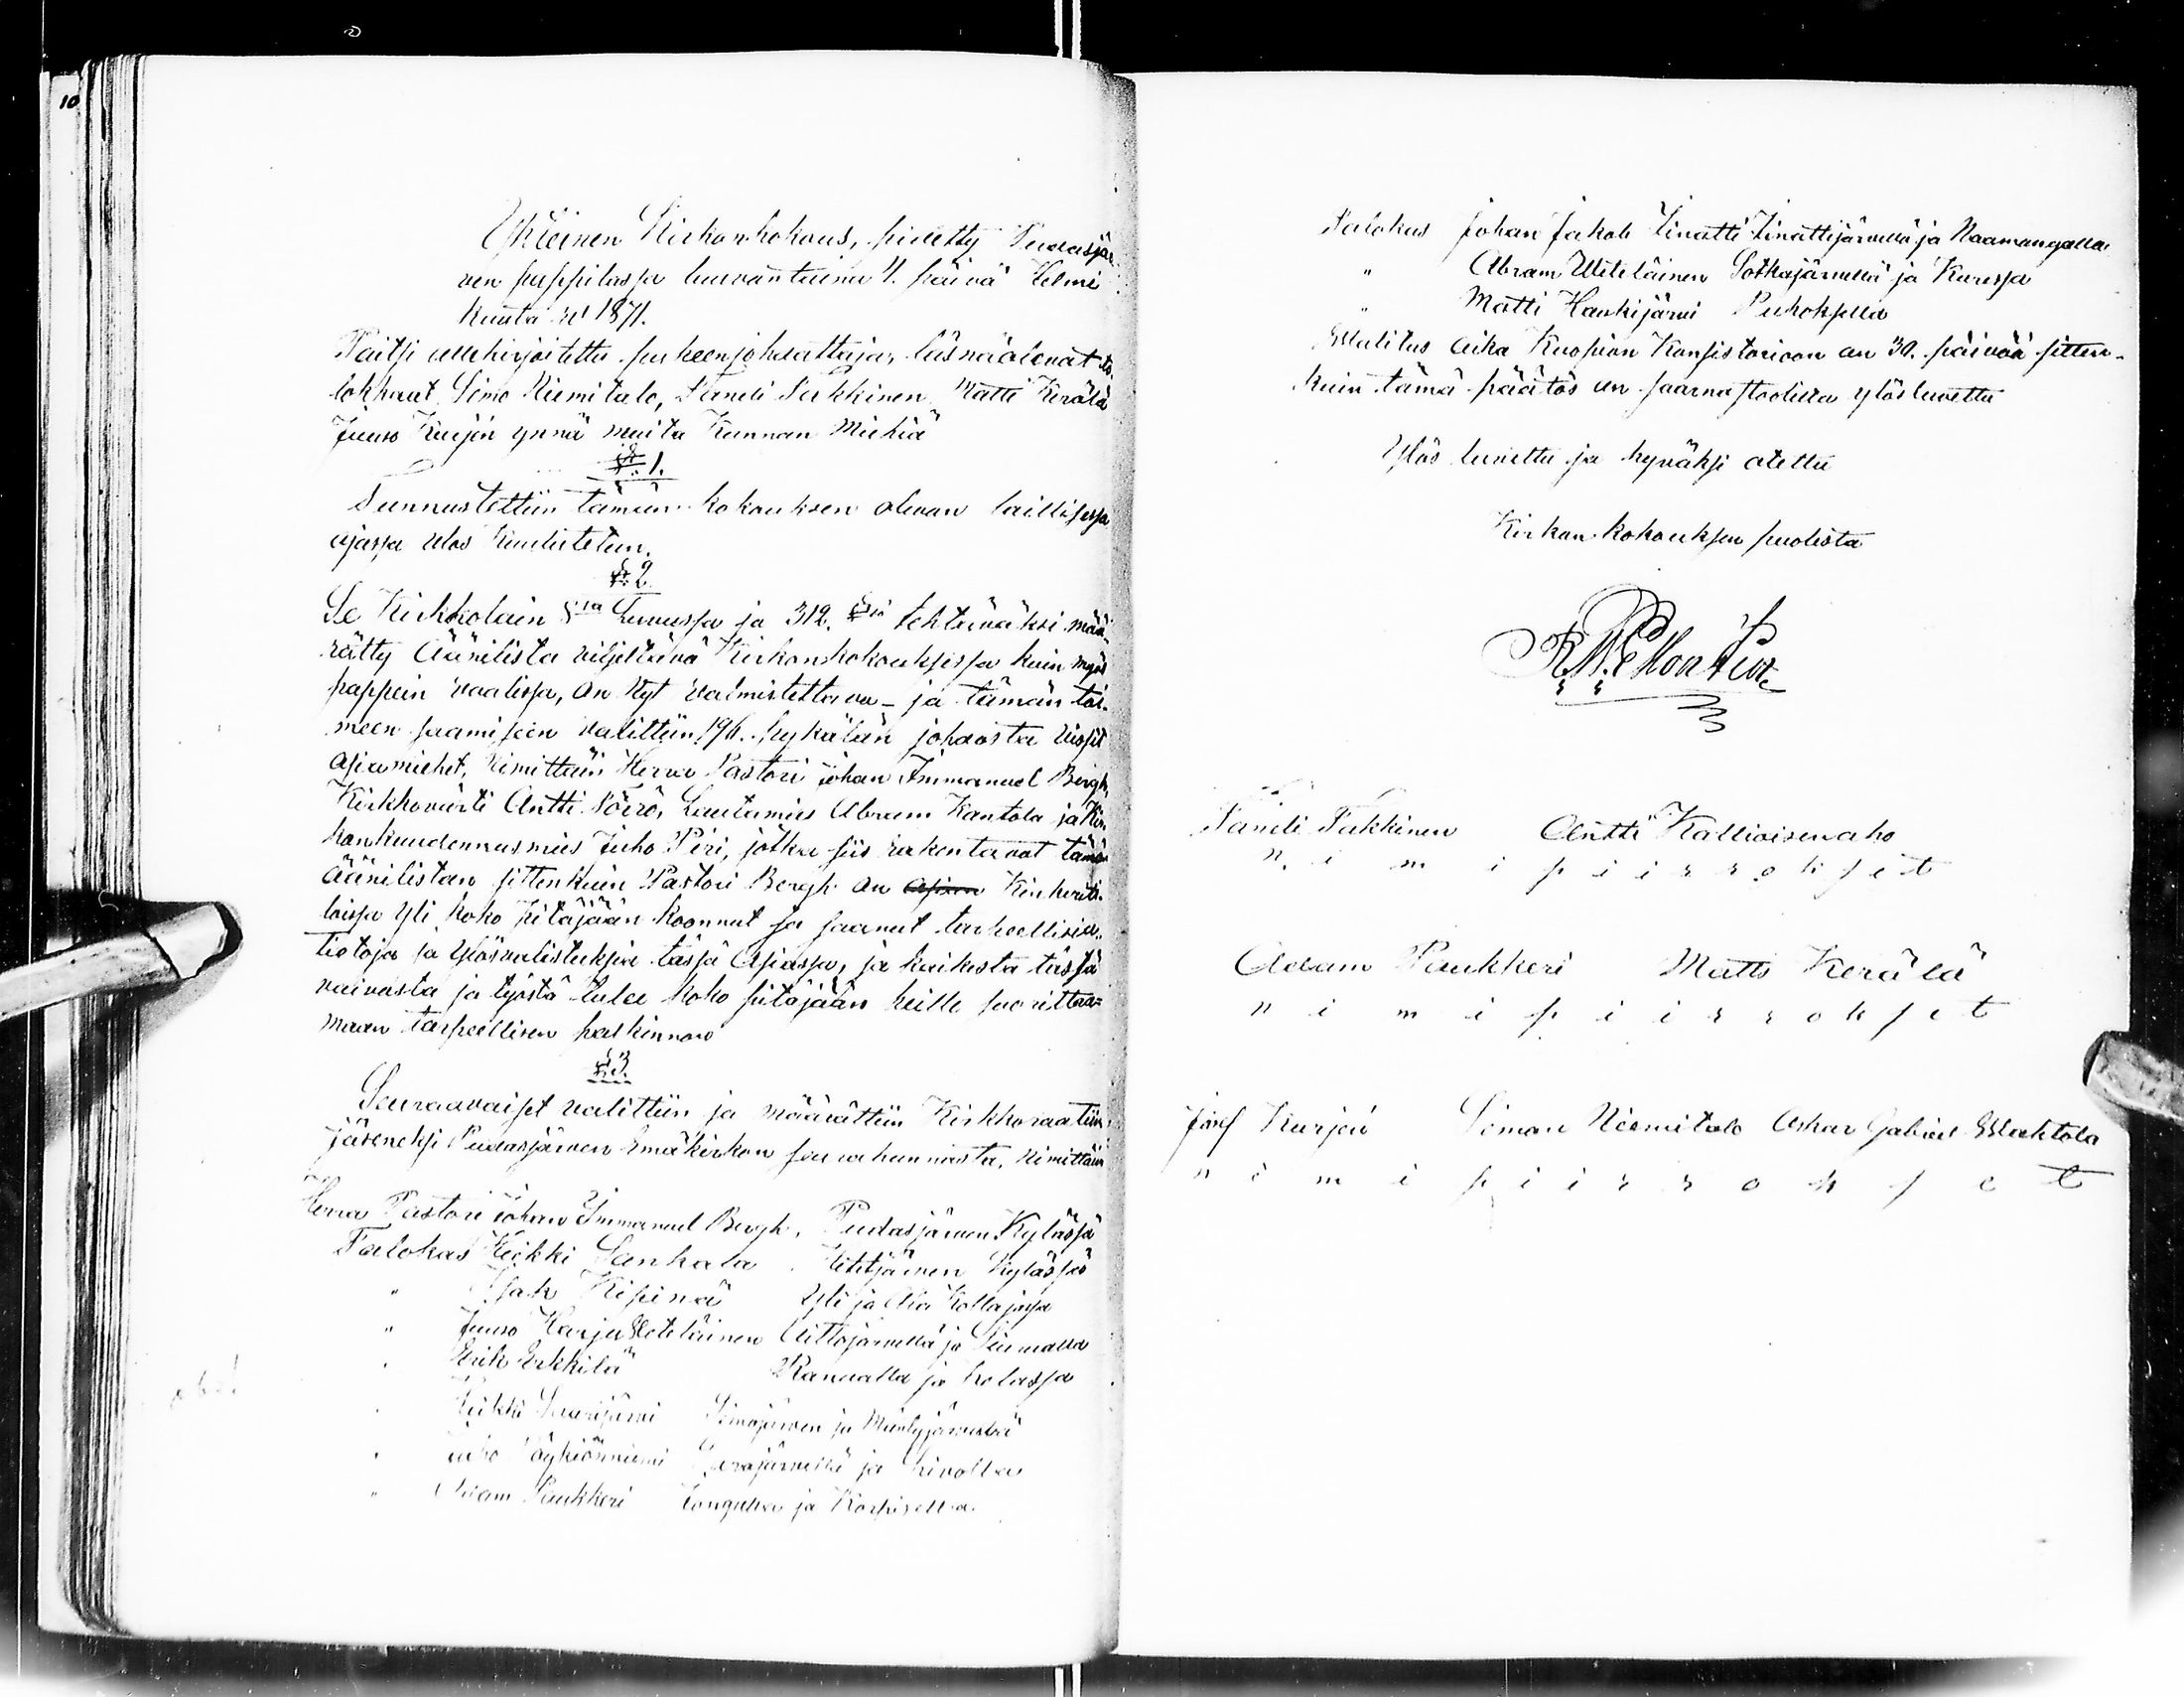 10
Yhteinen Kirkonkokous, pidetty Pudasjär
ven pappilassa lauvantaina 4. päivä Helmi
kuuta w 1871.
Paitsi allekirjoitettu puheenjohdattaja, läsnäolevat ta
lokkaat Simo Niemitalo, Taneli Parkkinen Matti Kerälä
Juuso Kurjen ynnä muita Kunnan Miehiä
§. 1.
Tunnustettiin tämän kokouksen olevan laillisessa
ajassa ulos kuulutetun.
§ 2.
Se Kirkkolain 8sa Luvussa ja 312. §sä tehtäväksi mää-
rätty Äänilista viljeltävä Kirkonkokouksissa kuin myös
pappein vaalissa, on Nyt valmistettava – ja tämän toi-
meen saamiseen valittiin 196. pykälän johdosta
Asiamiehet, Nimittäin Herra Pastori Johan Immanuel Bergh,
Kirkkovärti Antti Törrö, Lautamies Abram Kantola ja Kir
konkuudennusmies Juho Piri, jotka siis rakentavat tämän
äänilistan sittenkuin Pastori Bergh on Asian Kinkerit-
loissa yli koko Pitäjään koonnut ja saanut tarkeellisia
tietoja ja ylösvalistuksia tässä Asiassa, ja kaikesta tästä
vaivasta ja työstä tulee koko pitäjään heille suoritta-
maan tarpeellisen palkinnon
§ 3.
Seuraavaiset valittiin ja määrättiin Kirkkoraatiin
jäseneksi Pudasjärven Emäkirkon seurakunnasta, Nimittäin
Herra Pastori Johan Immanuel Bergh, Pudasjärven Kylässä
Talokas Heikki Sankala Hetejärven Kylässä
" Isak Kipinä Yli ja Ala Kollajassa
" Juuso Harju Aittojärvellä ja Siirualla
" Erik Erkkilä Ranualla ja
" Heikki Saarijärvi Simojärven ja Mäntyjärvestä
" Juho Törkiönniemi Sarajärvellä ja Livolla
" Adam Paukkeri Tonguka ja Korpisella.
Talokas Johan Jakob Tinatti Sinattijärvellä ja Naamangalla
" Abram Uiteläinen Sotkajärvellä ja Kuressa
" Matti Haukijärvi Puhoksella
Walitus aika Kuopion Konsistorioon on 30. päivää sitten-
kuin tämä päätös on saarnastoolilta ylösluvettu
Ylös luvettu ja hyväksi otettu
Kirkon kokouksen puolesta
R. W. Montin
Taneli Parkkinen Antti Kallioisenaho
n i m i p i i r r o k s e t
Adam Paukkeri Matts Kerälä
n i m i p i i r r o k s e t
Josef Kurjen Simon Niemitalo Oskar Gabriel Waktola
n i m i p i i r r o k s e t